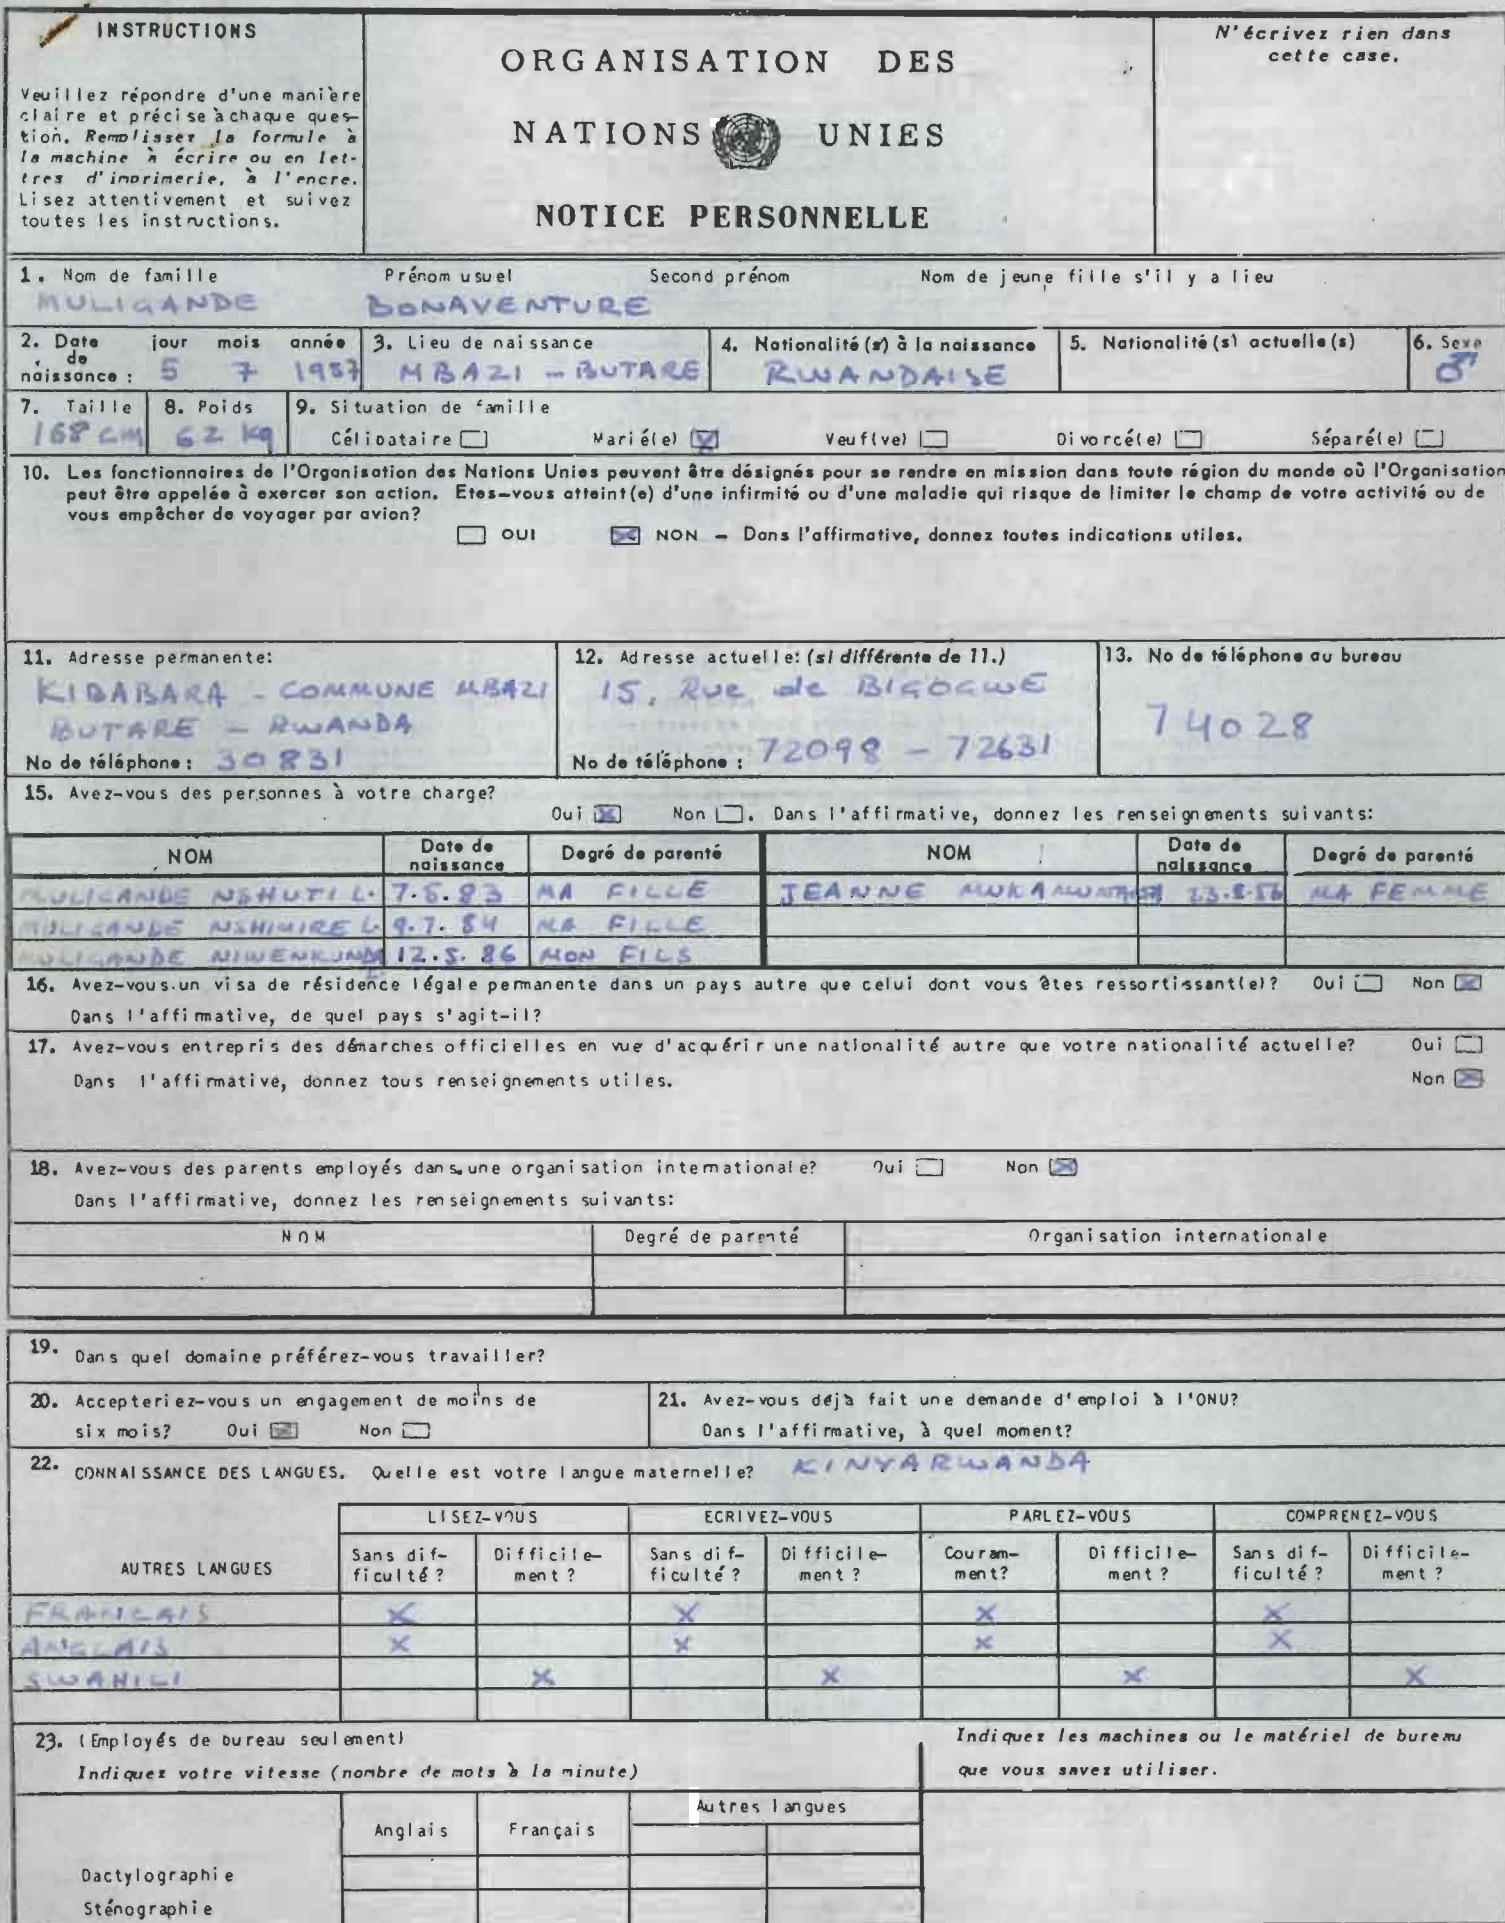 INSTRUCTIONS
Veuillez répondre d'une manière
claire et précise à chaque ques-
tion. Remplissez la formule à
la machine à écrire ou en let-
tres d'imprimerie, à l'encre.
Lisez attentivement et suivez
toutes les instructions.
ORGANISATION DES
NATIONS UNIES
NOTICE PERSONNELLE
N'écrivez rien dans
cette case.
1. Nom de famille Prénom usuel Second prénom Nom de jeune fille s'il y a lieu
MULIGANDE BONAVENTURE
2. Date de naissance : jour mois année
5 7 1957
3. Lieu de naissance
MBAZI - BUTARE
4. Nationalité(s) à la naissance
RWANDAISE
5. Nationalité(s) actuelle(s)
6. Sexe
♂
7. Taille
168 cm
8. Poids
62 kg
9. Situation de famille
Célibataire Marié(e) X Veuf(ve) Divorcé(e) Séparé(e)
10. Les fonctionnaires de l'Organisation des Nations Unies peuvent être désignés pour se rendre en mission dans toute région du monde où l'Organisation
peut être appelée à exercer son action. Etes-vous atteint(e) d'une infirmité ou d'une maladie qui risque de limiter le champ de votre activité ou de
vous empêcher de voyager par avion?
OUI X NON - Dans l'affirmative, donnez toutes indications utiles.
11. Adresse permanente:
KIBABARA - COMMUNE MBAZI
BUTARE - RWANDA
No de téléphone : 30831
12. Adresse actuelle: (si différente de 11.)
15, Rue de BIGOGWE
No de téléphone : 72098 - 72631
13. No de téléphone au bureau
74028
15. Avez-vous des personnes à votre charge?
Oui X Non . Dans l'affirmative, donnez les renseignements suivants:
NOM Date de naissance Degré de parenté NOM Date de naissance Degré de parenté
MULIGANDE NSHUTI L. MA FILLE JEANNE MA FEMME
MULIGANDE NSHIMIRE L. 9.7.84 MA FILLE
MULIGANDE 12.5.86 MON FILS
16. Avez-vous un visa de résidence légale permanente dans un pays autre que celui dont vous êtes ressortissant(e)? Oui Non X
Dans l'affirmative, de quel pays s'agit-il?
17. Avez-vous entrepris des démarches officielles en vue d'acquérir une nationalité autre que votre nationalité actuelle? Oui
Dans l'affirmative, donnez tous renseignements utiles. Non X
18. Avez-vous des parents employés dans une organisation internationale? Oui Non X
Dans l'affirmative, donnez les renseignements suivants:
NOM Degré de parenté Organisation internationale
19. Dans quel domaine préférez-vous travailler?
20. Accepteriez-vous un engagement de moins de
six mois? Oui X Non
21. Avez-vous déjà fait une demande d'emploi à l'ONU?
Dans l'affirmative, à quel moment?
22. CONNAISSANCE DES LANGUES. Quelle est votre langue maternelle? KINYARWANDA
LISEZ-VOUS ECRIVEZ-VOUS PARLEZ-VOUS COMPRENEZ-VOUS
AUTRES LANGUES Sans dif-ficulté? Difficile-ment? Sans dif-ficulté? Difficile-ment? Couram-ment? Difficile-ment? Sans dif-ficulté? Difficile-ment?
FRANCAIS X X X X
ANGLAIS X X X X
SWAHILI X X X X
23. (Employés de bureau seulement)
Indiquez votre vitesse (nombre de mots à la minute)
Indiquez les machines ou le matériel de bureau
que vous savez utiliser.
Anglais Français Autres langues
Dactylographie
Sténographie